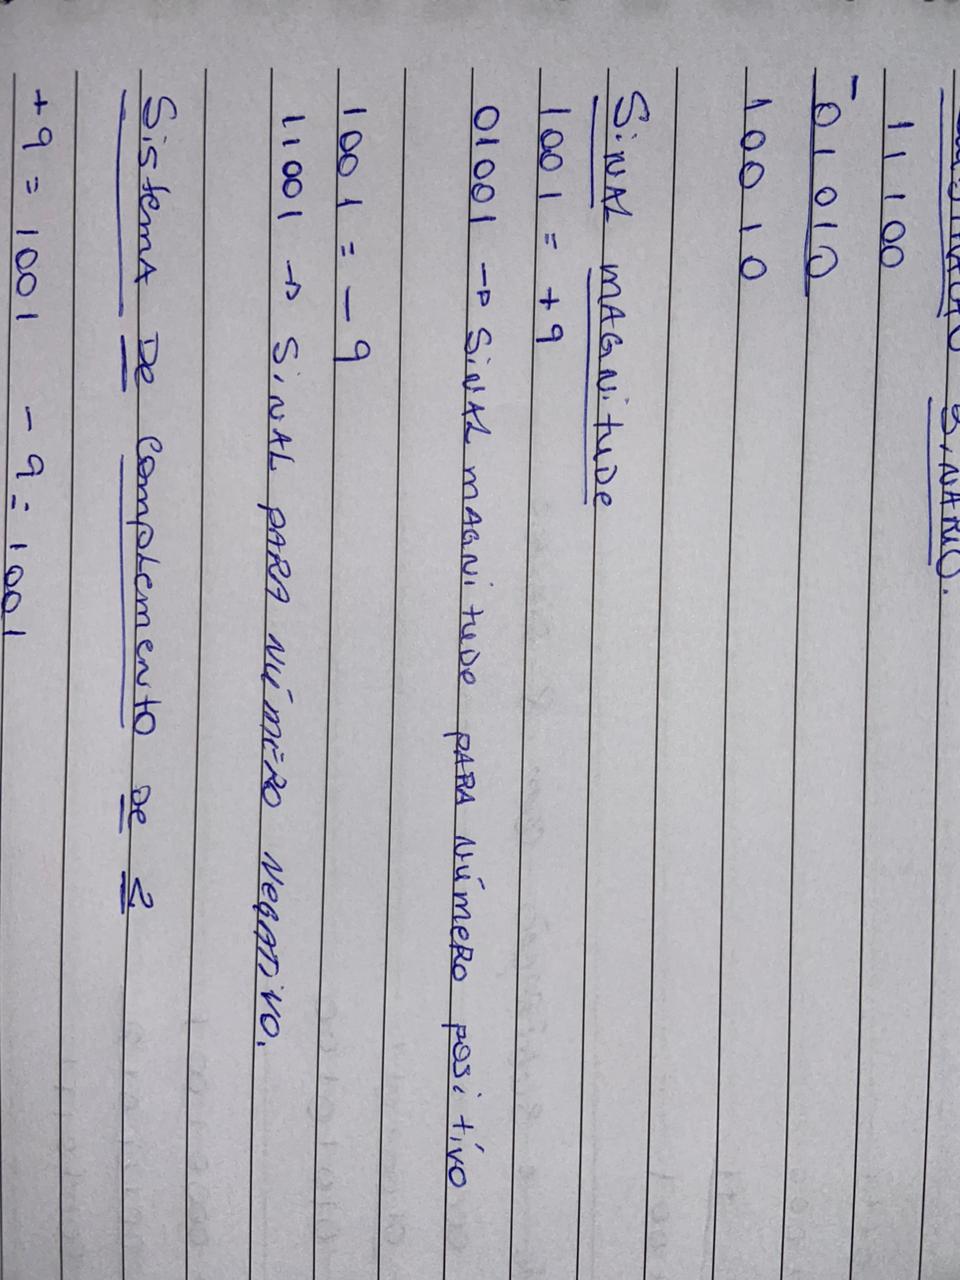 BINÁRIO.
11100
- 01010
10010
SiNAL mAGNituDe
1001 = +9
01001 → SiNAL mAGNituDe pARA Número positívo
1001 = - 9
11001 → SiNAL PARA NÚMERO NEGATIVO.
SistemA De Complemento De 2
+9 = 1001 - 9 = 1001